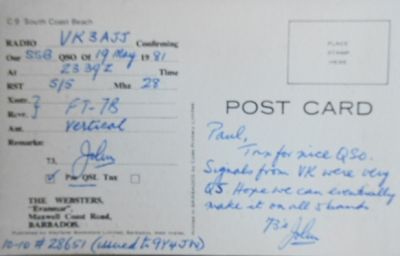 C 9 South Coast Beach
RADIO VK3AJJ Confirming
Our SSB QSO Of 19 May 1981
At 2339Z Time
RST 5/5 Mhz 28
Xmtr.
Recvr. } FT-7B
Ant. Vertical
Remarks:
73, John
☑ Pse QSL Tnx ☐
THE WEBSTERS,
"Evanmar",
Maxwell Coast Road,
BARBADOS.
10-10 # 28651 (issued to 9Y4JW)
PLACE
STAMP
HERE
POST CARD
Paul,
Tnx for nice QSO.
Signals from VK were very
Q5 Hope we can eventually
make it on all 5 bands
73's John